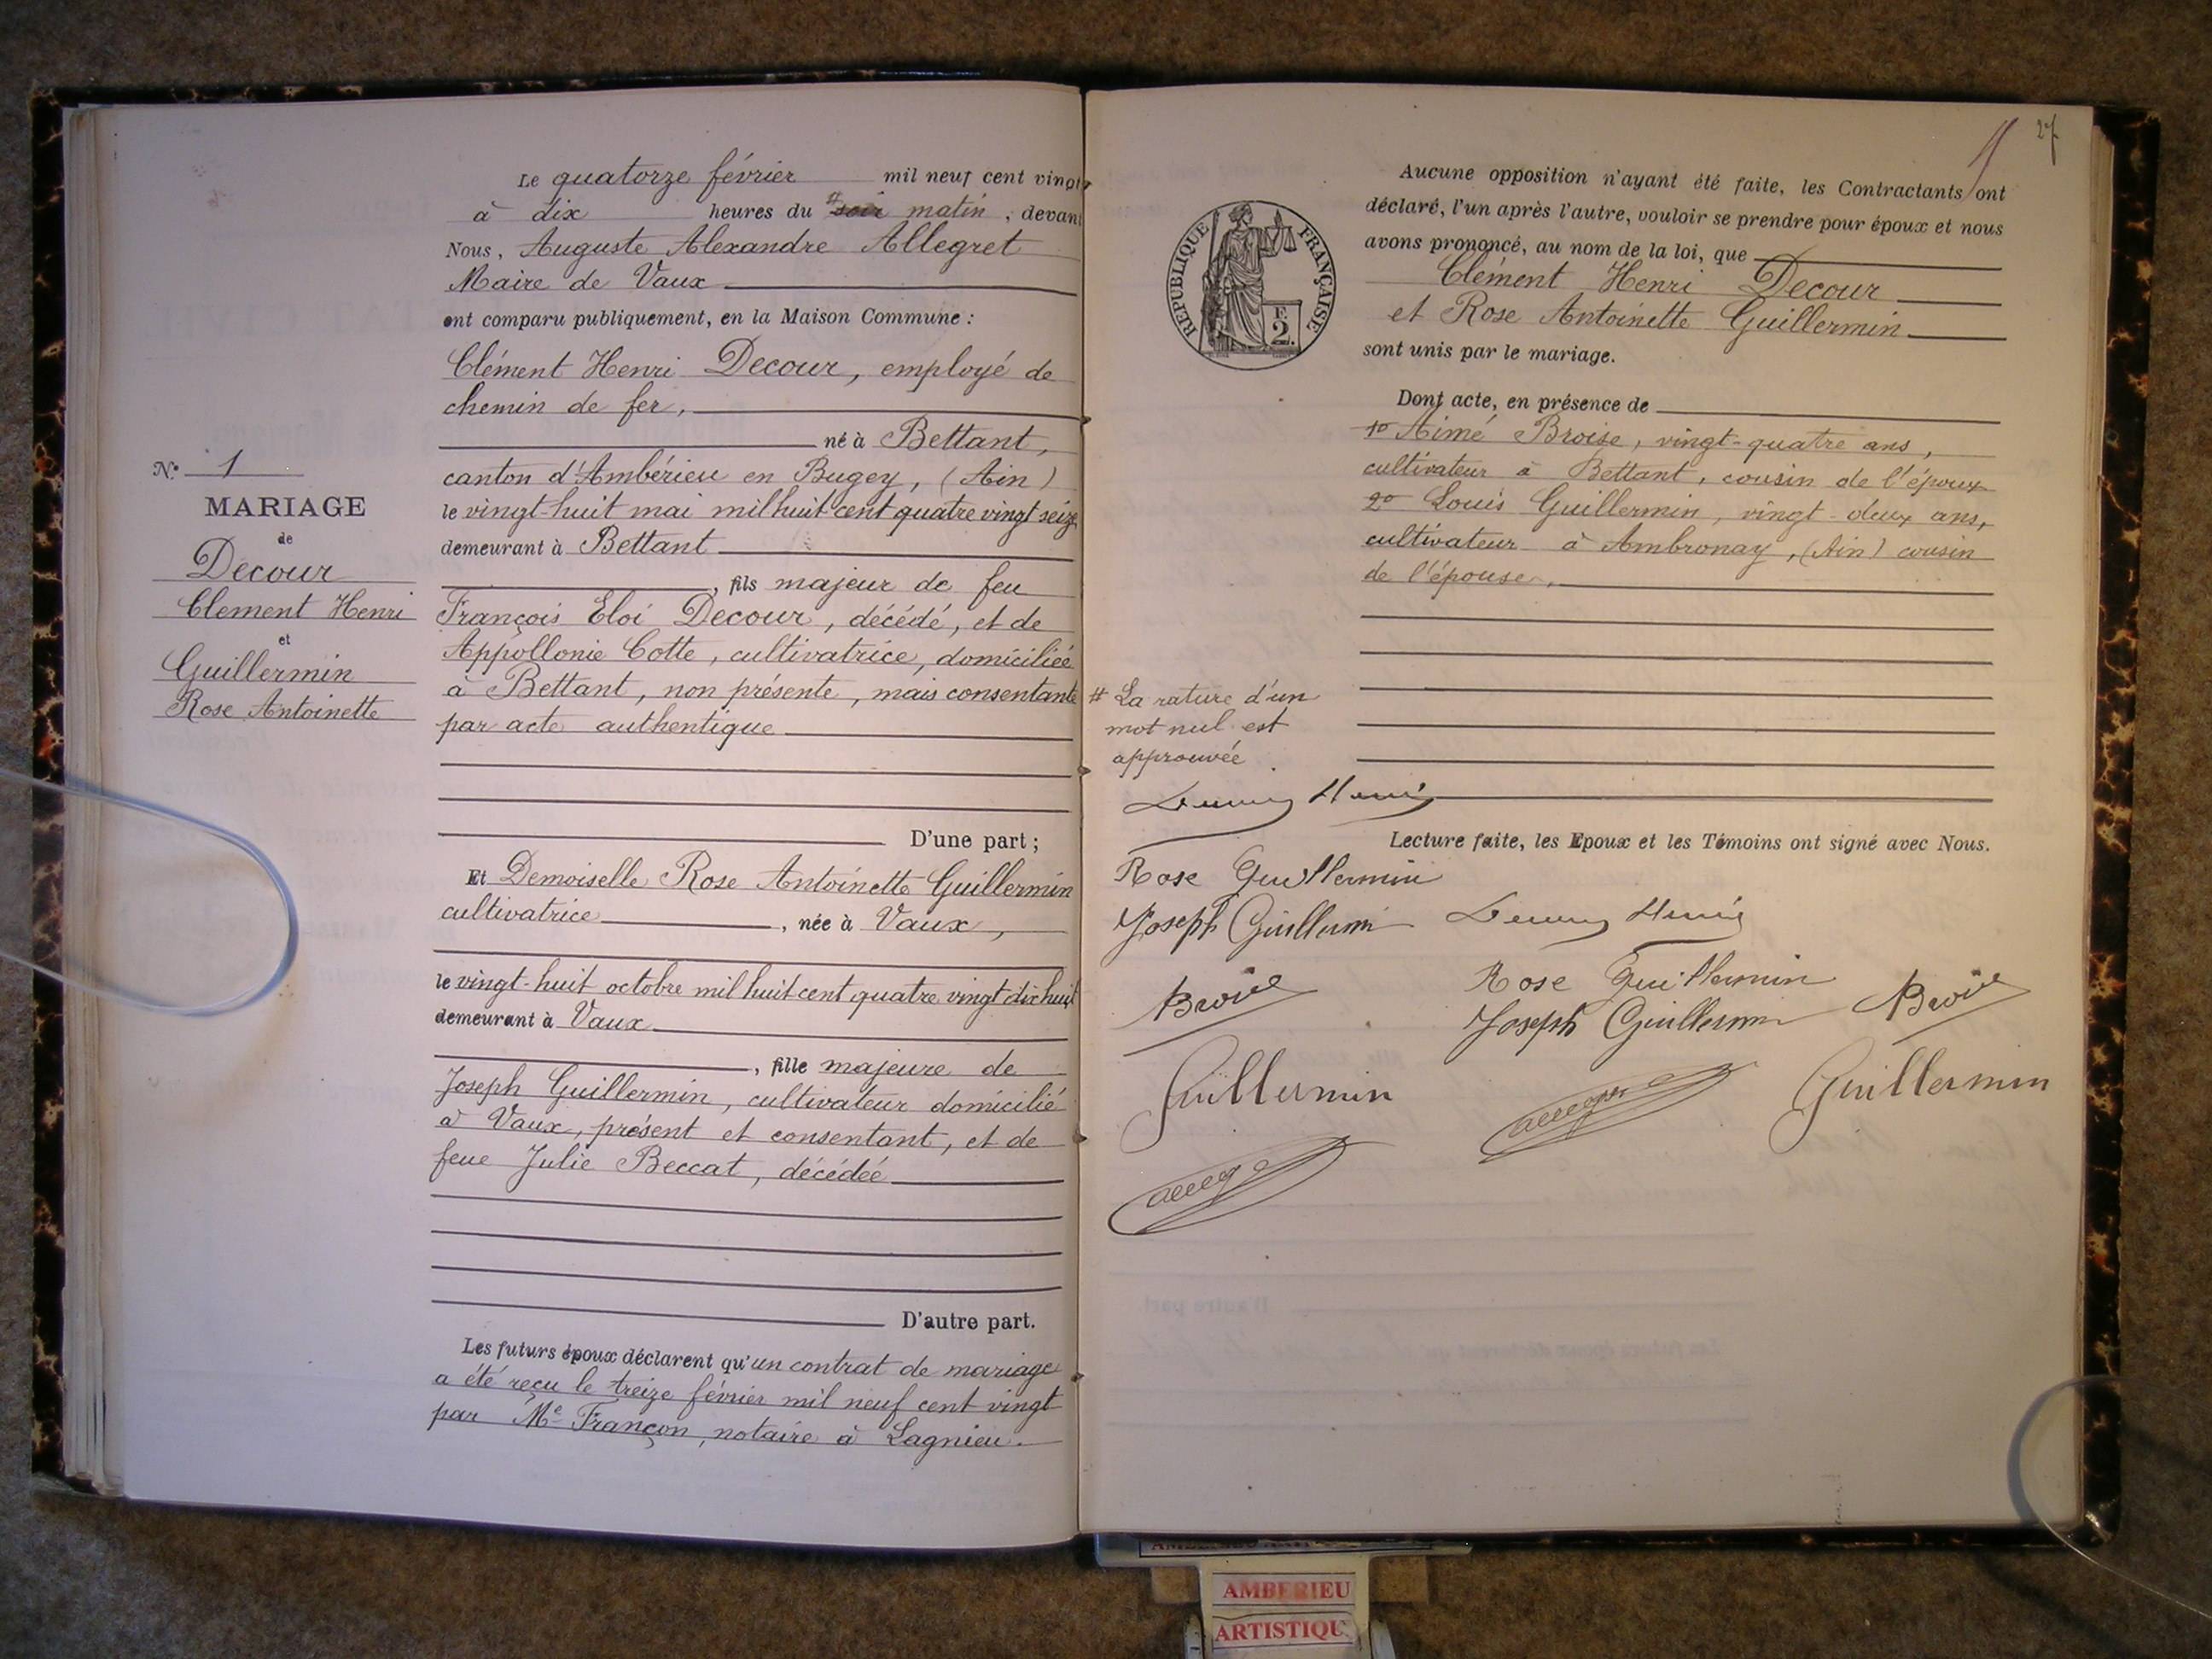 Le quatorze février mil neuf cent vingt
à dix heures du # soir matin, devant
Nous, Auguste Alexandre Allegret
Maire de Vaux
ont comparu publiquement, en la Maison Commune :
Clément Henri Decour, employé de
chemin de fer,
né à Bettant,
canton d'Ambérieu en Bugey, (Ain)
le vingt-huit mai mil huit cent quatre vingt seize
demeurant à Bettant
, fils majeur de feu
François Eloi Decour, décédé, et de
Appollonie Cotte, cultivatrice, domiciliée
à Bettant, non présente, mais consentante
par acte authentique
D'une part ;
Et Demoiselle Rose Antoinette Guillermin
cultivatrice, née à Vaux,
le vingt-huit octobre mil huit cent quatre vingt dix huit
demeurant à Vaux
, fille majeure de
Joseph Guillermin, cultivateur domicilié
à Vaux, présent et consentant, et de
feue Julie Beccat, décédée
D'autre part.
Les futurs époux déclarent qu'un contrat de mariage
a été reçu le treize février mil neuf cent vingt
par Me Françon, notaire à Lagnieu.
No. 1
MARIAGE
de
Decour
Clement Henri
et
Guillermin
Rose Antoinette
27
Aucune opposition n'ayant été faite, les Contractants ont
déclaré, l'un après l'autre, vouloir se prendre pour époux et nous
avons prononcé, au nom de la loi, que
Clément Henri Decour
et Rose Antoinette Guillermin
sont unis par le mariage.
REPUBLIQUE FRANÇAISE
F.
2.
Dont acte, en présence de
1o Aimé Broise, vingt-quatre ans,
cultivateur à Bettant, cousin de l'époux
2o Louis Guillermin, vingt-deux ans,
cultivateur à Ambronay, (Ain) cousin
de l'épouse,
# La rature d'un
mot nul est
approuvée
Lecture faite, les Epoux et les Témoins ont signé avec Nous.
Rose Guillermin
Joseph Guillermin
Rose Guillermin
Broise
Joseph Guillermin
Broise
Guillermin
Guillermin
AMBERIEU
ARTISTIQU